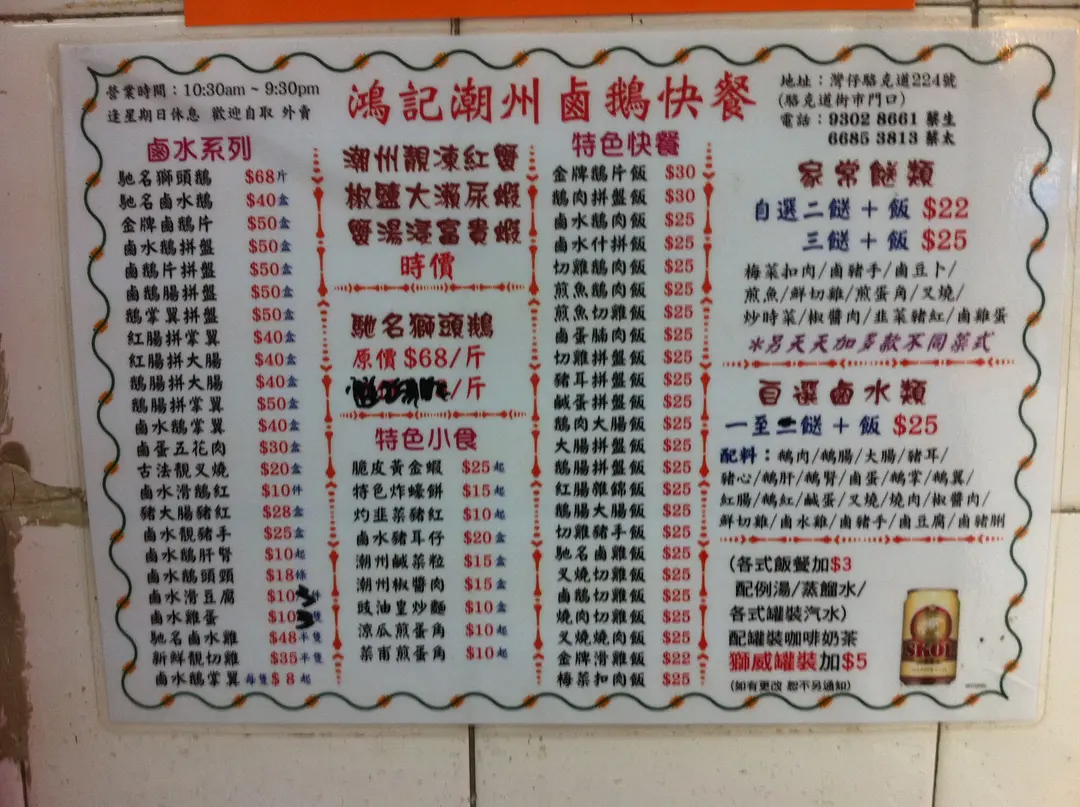 營業時間：10:30am ~ 9:30pm
逢星期日休息 歡迎自取 外賣
鴻記潮州鹵鵝快餐
地址：灣仔駱克道224號
(駱克道街市門口)
電話：9302 8661 蔡生
6685 3813 蔡太
鹵水系列
馳名獅頭鵝 $68斤
馳名鹵水鵝 $40盒
金牌鹵鵝片 $50盒
鹵水鵝拼盤 $50盒
鹵鵝片拼盤 $50盒
鹵鵝腸拼盤 $50盒
鵝掌翼拼盤 $50盒
紅腸拼掌翼 $40盒
紅腸拼大腸 $40盒
鵝腸拼大腸 $40盒
鵝腸拼掌翼 $50盒
鹵水鵝掌翼 $40盒
鹵蛋五花肉 $30盒
古法靚叉燒 $20盒
鹵水滑鵝紅 $10件
豬大腸豬紅 $28盒
鹵水靚豬手 $25盒
鹵水鵝肝腎 $10起
鹵水鵝頭頸 $18條
鹵水滑豆腐 $10 件
鹵水雞蛋 $10 隻
馳名鹵水雞 $48半隻
新鮮靚切雞 $35半隻
鹵水鵝掌翼 每隻$8起
潮州靚凍紅蟹
椒鹽大瀨尿蝦
蟹湯浸富貴蝦
時價
馳名獅頭鵝
原價$68/斤
/斤
特色小食
脆皮黃金蝦 $25起
特色炸蠔餅 $15起
灼韭菜豬紅 $10起
鹵水豬耳仔 $20盒
潮州鹹菜粒 $15盒
潮州椒醬肉 $15盒
豉油皇炒麵 $10盒
涼瓜煎蛋角 $10起
菜甫煎蛋角 $10起
特色快餐
金牌鵝片飯 $30
鵝肉拼盤飯 $30
鹵水鵝肉飯 $25
鹵水什拼飯 $25
切雞鵝肉飯 $25
煎魚鵝肉飯 $25
煎魚切雞飯 $25
鹵蛋腩肉飯 $25
切雞拼盤飯 $25
豬耳拼盤飯 $25
鹹蛋拼盤飯 $25
鵝肉大腸飯 $25
大腸拼盤飯 $25
鵝腸拼盤飯 $25
紅腸雜錦飯 $25
鵝腸大腸飯 $25
切雞豬手飯 $25
馳名鹵雞飯 $25
叉燒切雞飯 $25
鹵鵝切雞飯 $25
燒肉切雞飯 $25
叉燒燒肉飯 $25
金牌滑雞飯 $22
梅菜扣肉飯 $25
家常餸類
自選二餸＋飯 $22
三餸＋飯 $25
梅菜扣肉/鹵豬手/鹵豆卜/
煎魚/鮮切雞/煎蛋角/叉燒/
炒時菜/椒醬肉/韭菜豬紅/鹵雞蛋
*另天天加多款不同菜式
自選鹵水類
一至二餸＋飯 $25
配料：鵝肉/鵝腸/大腸/豬耳/
豬心/鵝肝/鵝腎/鹵蛋/鵝掌/鵝翼/
紅腸/鵝紅/鹹蛋/叉燒/燒肉/椒醬肉/
鮮切雞/鹵水雞/鹵豬手/鹵豆腐/鹵豬脷
(各式飯餐加$3
配例湯/蒸餾水/
各式罐裝汽水)
配罐裝咖啡奶茶
獅威罐裝加$5
(如有更改 恕不另通知)
SKOL